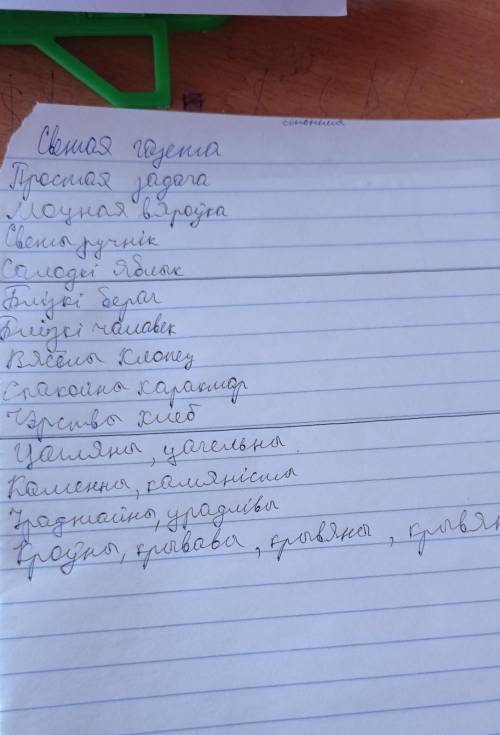 сінонимия
Свежая газета
Простая задача
Моцная вяроўка
Свежы ручнік
Салодкі яблык
Блізкі бераг
Блізкі чалавек
Вясёлы хлопец
Спакойны характар
Чэрствы хлеб
Цагляны, цагельны
Каменны, камяністы
Ураджайны, урадлівы
Кроўны, крывавы, крывяны,